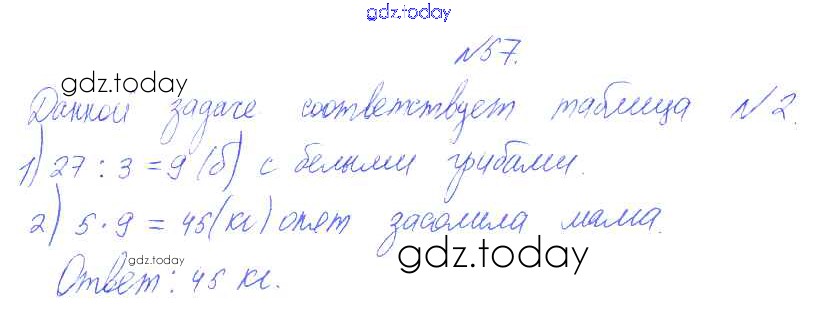 gdz.today
№57.
gdz.today
Данной задаче соответствует таблица №2.
1) 27 : 3 = 9 (б) с белыми грибами.
2) 5 · 9 = 45 (кг) опят засолила мама.
gdz.today
gdz.today
Ответ: 45 кг.